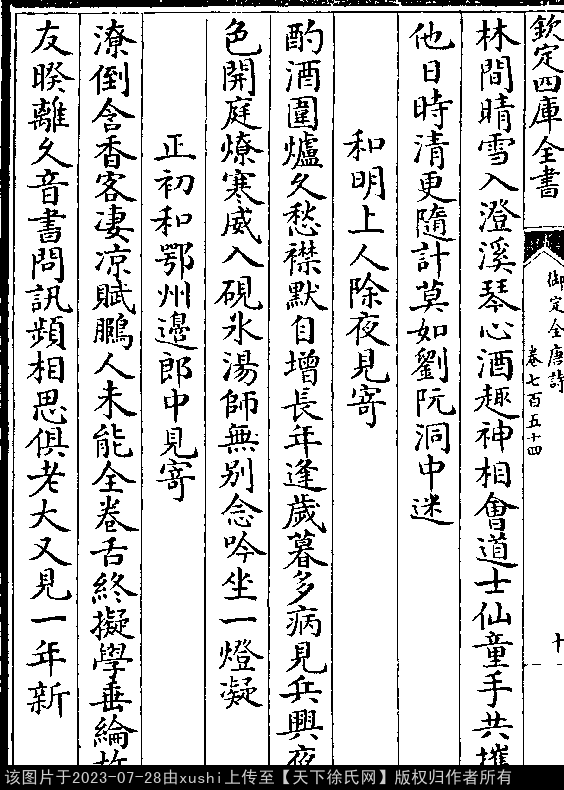 欽定四庫全書
御定全唐詩
卷七百五十四
十
林間晴雪入澄溪琴心酒趣神相會道士仙童手共攜
他日時清更隨計莫如劉阮洞中迷
和明上人除夜見寄
酌酒圍爐久愁襟默自增長年逢歲暮多病見兵興夜
色開庭燎寒威入硯氷湯師無別念吟坐一燈凝
正初和鄂州邊郎中見寄
潦倒含香客凄凉賦鵩人未能全卷舌終擬學垂綸故
友暌離久音書問訊頻相思俱老大又見一年新
该图片于2023-07-28由xushi上传至【天下徐氏网】版权归作者所有